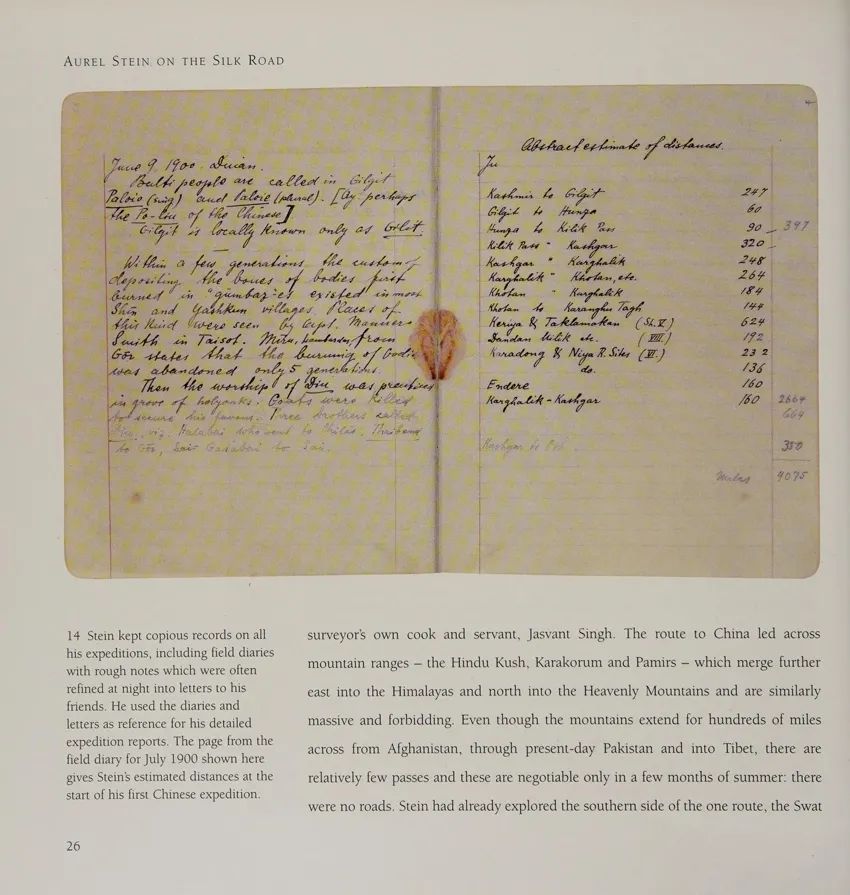 AUREL STEIN ON THE SILK ROAD
June 9. 1900. Duian.
Balti people are called in Gilgit
Paloio (sing) and Paloie (plural). [Cf. perhaps
the Po-lou of the Chinese]
Gilgit is locally known only as Gilit.
Within a few generations the custom of
depositing the bones of bodies first
burned in "gumbaz"-es existed in most
Shin and Yashkun villages. Places of
this kind were seen by Capt. Manners
Smith in Taisot. from
Gōr states that the burning of bodies
was abandoned only 5 generations.
Then the worship of was practised
in grove of Goats were killed
to secure his favour. Three brothers called
viz. who went to Chilas,
to Gōr, to
Abstract estimate of distances.
Kashmir to Gilgit 247
Gilgit to Hunza 60
Hunza to Kilik Pass 90 397
Kilik Pass " Kashgar 320
Kashgar " Karghalik 248
Karghalik " Khotan, etc. 264
Khotan " Karghalik 184
Khotan to Karanghu Tagh 144
Keriya & Taklamakan 624
Dandan Uilik etc. (VIII.) 192
Karadong & Niya R. Sites (VI.) 232
do. 136
Endere 160
Karghalik - Kashgar 160 2664
664
Kashgar to Osh. 350
Miles 4075
14 Stein kept copious records on all
his expeditions, including field diaries
with rough notes which were often
refined at night into letters to his
friends. He used the diaries and
letters as reference for his detailed
expedition reports. The page from the
field diary for July 1900 shown here
gives Stein's estimated distances at the
start of his first Chinese expedition.
surveyor's own cook and servant, Jasvant Singh. The route to China led across
mountain ranges – the Hindu Kush, Karakorum and Pamirs – which merge further
east into the Himalayas and north into the Heavenly Mountains and are similarly
massive and forbidding. Even though the mountains extend for hundreds of miles
across from Afghanistan, through present-day Pakistan and into Tibet, there are
relatively few passes and these are negotiable only in a few months of summer: there
were no roads. Stein had already explored the southern side of the one route, the Swat
26